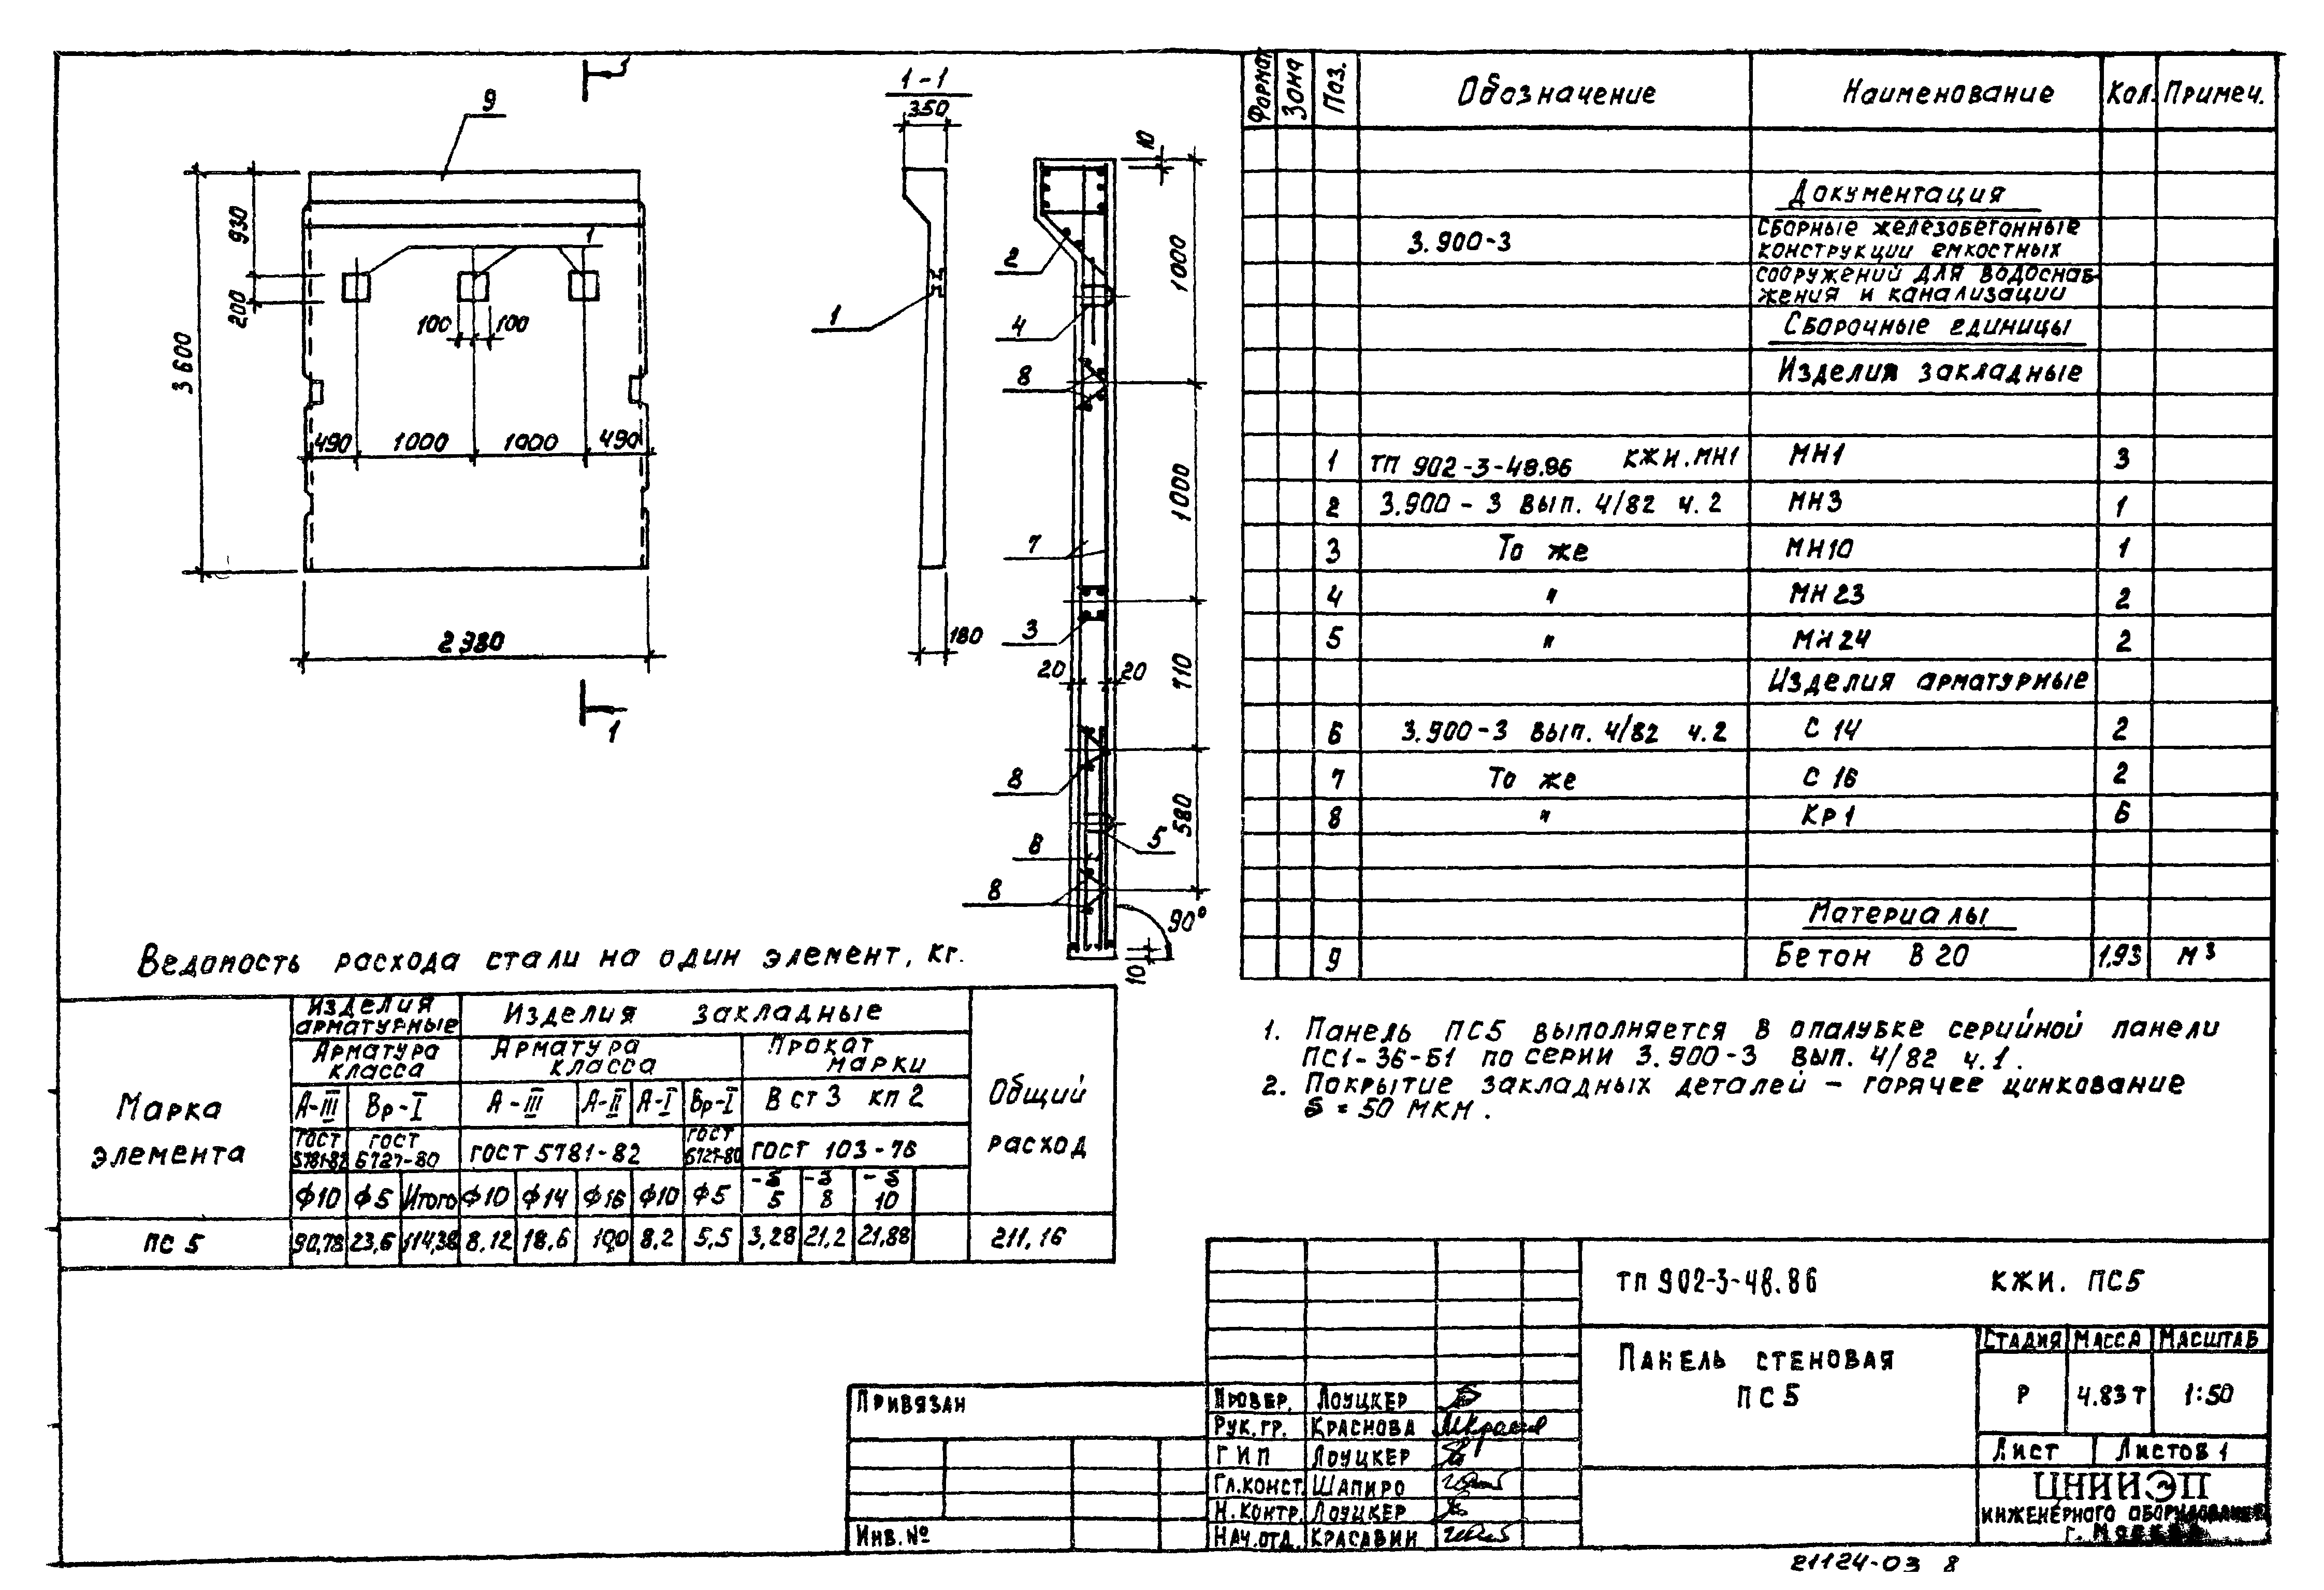 1-1
350
9
930
200
3600
1
100 100
490 1000 1000 490
2980
1
1
180
10
1000
2
4
8
1000
7
3
20 20
710
8
580
5
8
90°
10
Формат Зона Поз. Обозначение Наименование Кол. Примеч.
Документация
3.900-3 Сборные железобетонные
конструкции емкостных
сооружений для водоснаб-
жения и канализации
Сборочные единицы
Изделия закладные
1 ТП 902-3-48.86 КЖИ.МН1 МН1 3
2 3.900-3 вып. 4/82 ч.2 МН3 1
3 То же МН10 1
4 " МН23 2
5 " МН24 2
Изделия арматурные
6 3.900-3 вып. 4/82 ч.2 С 14 2
7 То же С 16 2
8 " КР1 6
Материалы
9 Бетон В 20 1,93 м3
1. Панель ПС5 выполняется в опалубке серийной панели
ПС1-36-Б1 по серии 3.900-3 вып. 4/82 ч.1.
2. Покрытие закладных деталей – горячее цинкование
δ = 50 мкм.
Ведомость расхода стали на один элемент, кг.
Марка
элемента
Изделия
арматурные
Изделия закладные
Общий
расход
Арматура
класса
Арматура
класса
Прокат
марки
А-III Вр-I А-III А-II А-I Вр-I В ст 3 кп 2
ГОСТ
5781-82
ГОСТ
6727-80
ГОСТ 5781-82
ГОСТ
6727-80
ГОСТ 103-76
Ф10 Ф5 Итого Ф10 Ф14 Ф16 Ф10 Ф5 -δ 5 -δ 8 -δ 10
ПС 5 90,78 23,6 114,38 8,12 18,6 10,0 8,2 5,5 3,28 21,2 21,88 211,16
ТП 902-3-48.86 КЖИ. ПС5
Панель стеновая
ПС5
Стадия Масса Масштаб
Р 4.83т 1:50
Лист Листов 1
ЦНИИЭП
инженерного оборудования
г. Москва
Привязан
Инв. №
Провер. Лоуцкер
Рук. гр. Краснова
ГИП Лоуцкер
Гл. конст. Шапиро
Н. контр. Лоуцкер
Нач. отд. Красавин
21124-03 8